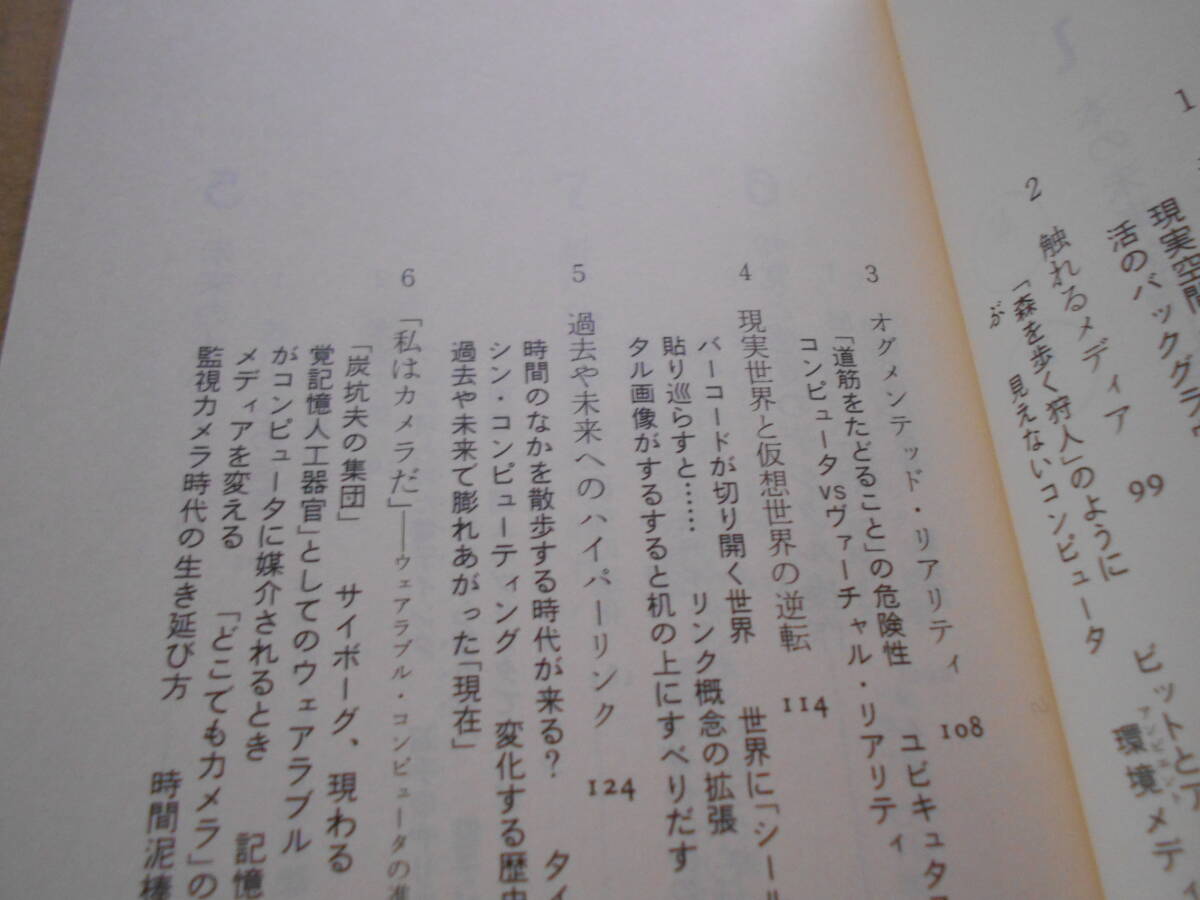 1
現実空間
活のバックグラウ
2 触れるメディア 99
「森を歩く狩人」のように ビットとア
見えないコンピュータ 環境メディ
アンビエント
が
3 オグメンテッド・リアリティ 108
「道筋をたどること」の危険性 ユビキュタス
コンピュータvsヴァーチャル・リアリティ
4 現実世界と仮想世界の逆転 114
バーコードが切り開く世界 世界に「シール
貼り巡らすと…… リンク概念の拡張
タル画像がするすると机の上にすべりだす
5 過去や未来へのハイパーリンク 124
時間のなかを散歩する時代が来る? タイ
シン・コンピューティング 変化する歴史
過去や未来で膨れあがった「現在」
6 「私はカメラだ」――ウェアラブル・コンピュータの進
「炭坑夫の集団」 サイボーグ、現わる
覚記憶人工器官」としてのウェアラブル
がコンピュータに媒介されるとき 記憶
メディアを変える 「どこでもカメラ」の
監視カメラ時代の生き延び方 時間泥棒